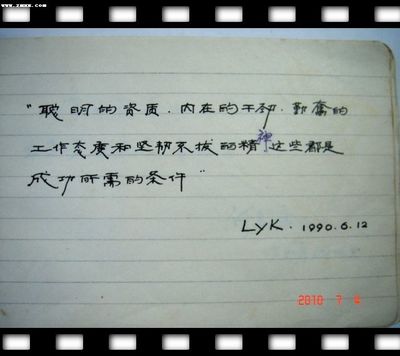 www.zmxm.com
"聪明的资质、内在的干劲、勤奋的
工作态度和坚韧不拔的精神这些都是
成功所需的条件"
LYK. 1990.6.12
2010 7 4